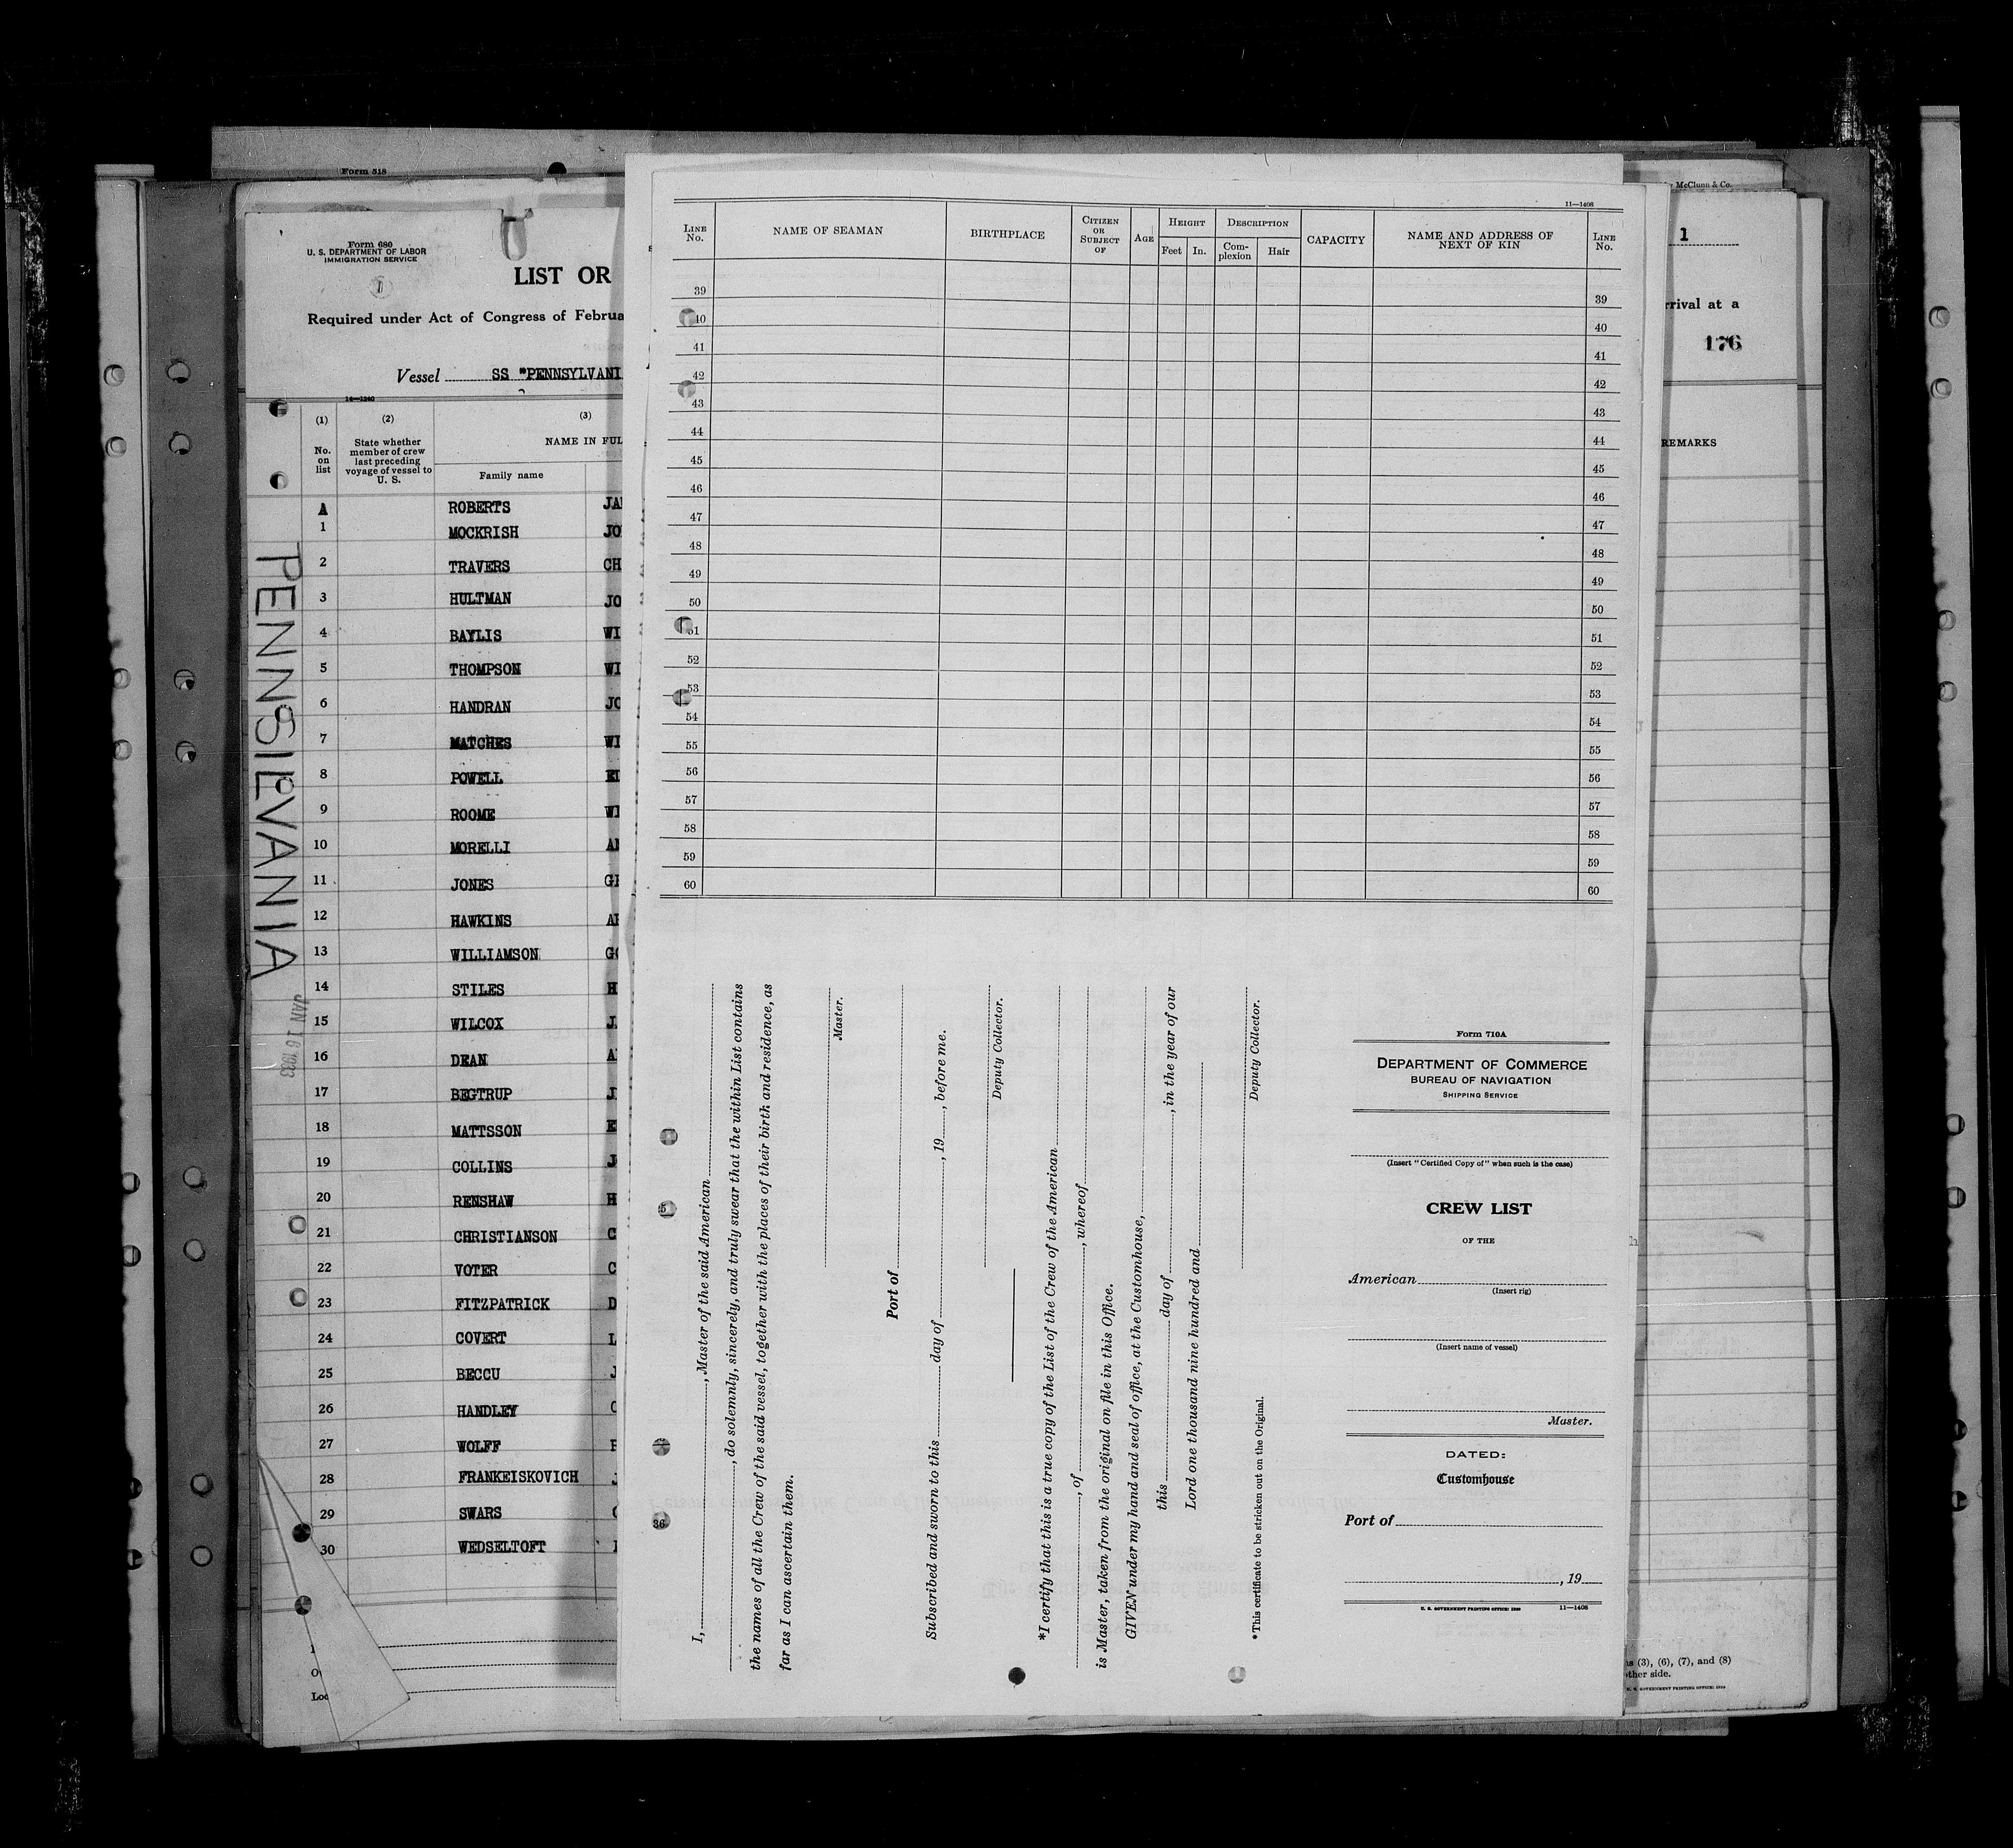 Form 518
Form 680
U. S. DEPARTMENT OF LABOR
IMMIGRATION SERVICE
LIST OR
Required under Act of Congress of Februa
Vessel SS "PENNSYLVANI
14—1240
(1) (2) (3)
No. on list
State whether member of crew last preceding voyage of vessel to U. S.
NAME IN FUL
Family name
A ROBERTS JA
1 MOCKRISH JO
2 TRAVERS CH
3 HULTMAN JO
4 BAYLIS WI
5 THOMPSON WI
6 HANDRAN JO
7 MATCHES WI
8 POWELL
9 ROOME WI
10 MORELLI
11 JONES
12 HAWKINS
13 WILLIAMSON
14 STILES H
15 WILCOX
16 DEAN A
17 BEGTRUP
18 MATTSSON E
19 COLLINS
20 RENSHAW H
21 CHRISTIANSON C
22 VOTER C
23 FITZPATRICK D
24 COVERT L
25 BECCU J
26 HANDLEY
27 WOLFF
28 FRANKEISKOVICH
29 SWARS
30 WEDSELTOFT
PENNSILVANIA
JAN 16 1933
11—1408
LINE No.
NAME OF SEAMAN
BIRTHPLACE
CITIZEN OR SUBJECT OF
AGE
HEIGHT
Feet In.
DESCRIPTION
Complexion Hair
CAPACITY
NAME AND ADDRESS OF NEXT OF KIN
LINE No.
39 39
40 40
41 41
42 42
43 43
44 44
45 45
46 46
47 47
48 48
49 49
50 50
51 51
52 52
53 53
54 54
55 55
56 56
57 57
58 58
59 59
60 60
I, , Master of the said American
, do solemnly, sincerely, and truly swear that the within List contains
the names of all the Crew of the said vessel, together with the places of their birth and residence, as
far as I can ascertain them.
Master.
Port of
Subscribed and sworn to this day of , 19 , before me.
Deputy Collector.
*I certify that this is a true copy of the List of the Crew of the American
, of , whereof
is Master, taken from the original on file in this Office.
GIVEN under my hand and seal of office, at the Customhouse,
this day of , in the year of our
Lord one thousand nine hundred and
Deputy Collector.
*This certificate to be stricken out on the Original.
Form 710A
DEPARTMENT OF COMMERCE
BUREAU OF NAVIGATION
SHIPPING SERVICE
(Insert "Certified Copy of" when such is the case)
CREW LIST
OF THE
American
(Insert rig)
(Insert name of vessel)
Master.
DATED:
Customhouse
Port of
, 19
U. S. GOVERNMENT PRINTING OFFICE: 1930 11—1408
McClunn & Co.
1
rrival at a
176
REMARKS
ns (3), (6), (7), and (8)
other side.
U. S. GOVERNMENT PRINTING OFFICE: 1930